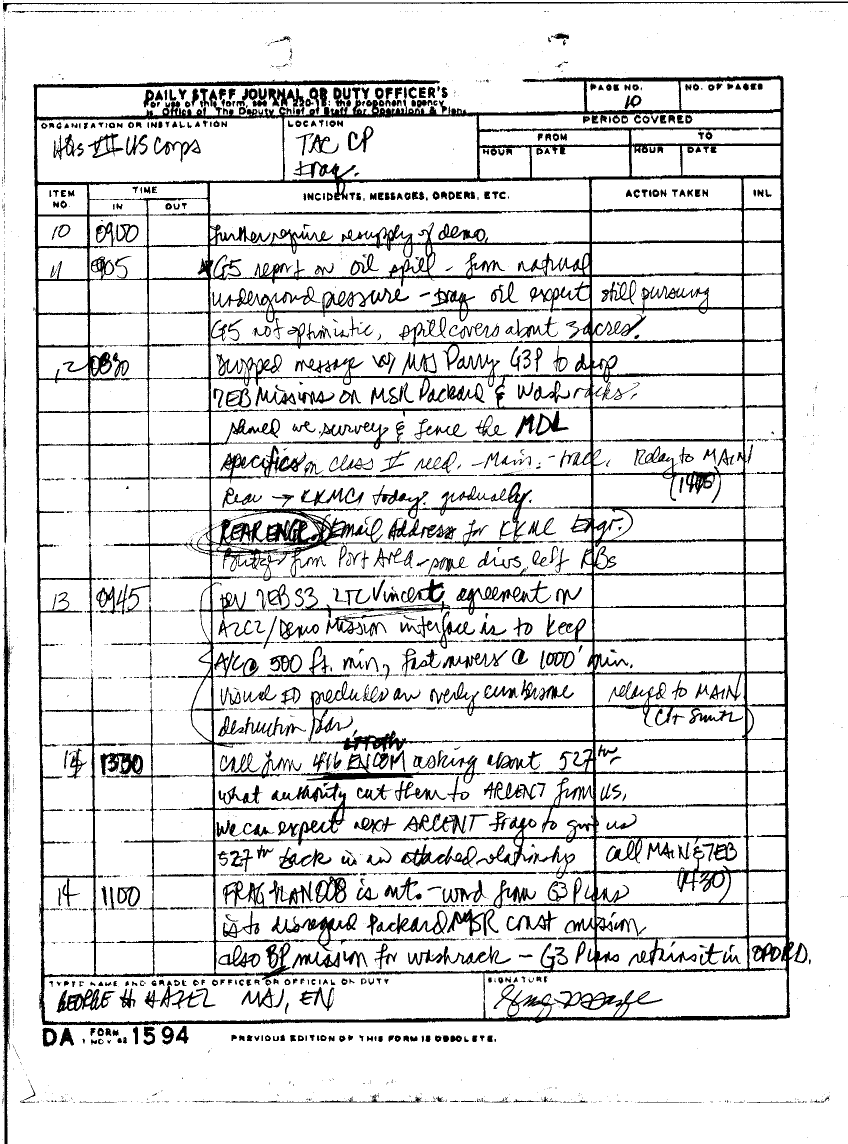 DAILY STAFF JOURNAL OR DUTY OFFICER'S
For use of this form, see AR 220-15; the proponent agency
is Office of The Deputy Chief of Staff for Operations & Plans.
PAGE NO.
10
NO. OF PAGES
ORGANIZATION OR INSTALLATION
HQs VII US Corps
LOCATION
TAC CP
Iraq.
PERIOD COVERED
FROM
TO
HOUR
DATE
HOUR
DATE
ITEM NO.
TIME
IN
OUT
INCIDENTS, MESSAGES, ORDERS, ETC.
ACTION TAKEN
INL
10 0900 further require resupply of demo.
11 0905 G5 report on oil spill - from natural
underground pressure - Iraq oil expert still pursuing
G5 not optimistic, spill covers about 3 acres.
12 0830 message w/ MAJ Parry G3P to drop
7EB Missions on MSR Packard & Washracks.
we survey & fence the MDL
specifics on class need. - Main - track. Relay to MAIN
Rear → KKMC today. gradually.
REAR ENGR. (Email Address for KKMC Engr.)
from Port Area - some divs, left RBs
13 0945 per 7EB S3, LTC Vincent, agreement on
A2C2/Demo Mission interface is to keep
A/C @ 500 ft. min, fast movers @ 1000' min.
Visual ID precludes an overly cumbersome relayed to MAIN
destruction plan. (Cpt Smith)
14 1330 call from 416 ENCOM asking about 527th
what authority cut them to ARCENT from us.
we can expect next ARCENT frago to give us
527th back in an attached relationship call MAIN & 7EB
(1430)
14 1100 FRAGPLAN 008 is out. - word from G3 Plans
is to disregard Packard MSR const mission
also BP mission for washrack - G3 Plans retains it in OPORD.
TYPED NAME AND GRADE OF OFFICER OR OFFICIAL ON DUTY
GEORGE H HAZEL MAJ, EN
SIGNATURE
DA FORM 1 NOV 62 1594
PREVIOUS EDITION OF THIS FORM IS OBSOLETE.